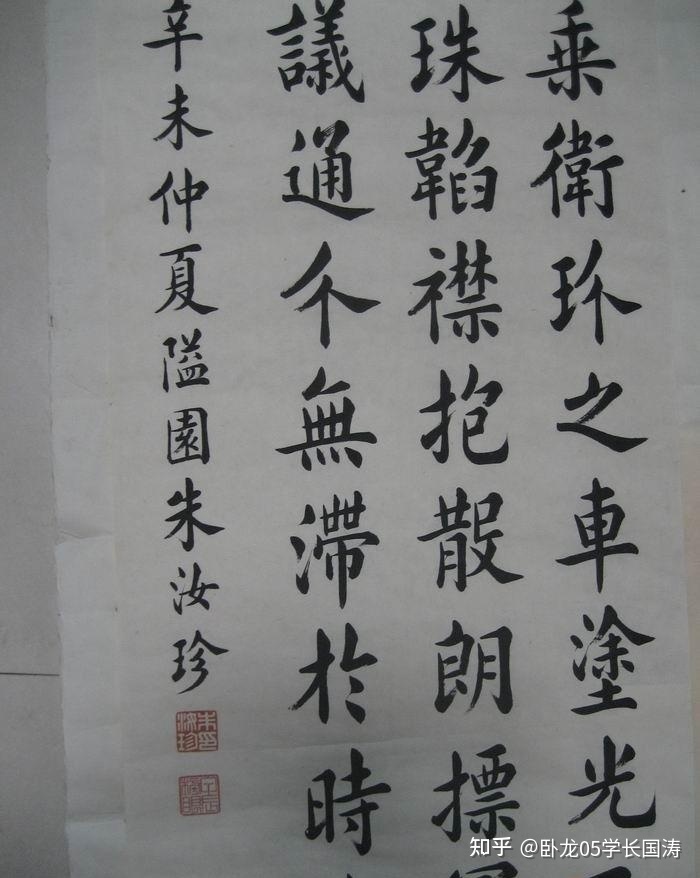 乗衛玠之車塗光
珠韜襟抱散朗摽
議通介無滯於時
辛未仲夏隘園朱汝珍
朱汝珍印
甲辰榜眼
知乎 @卧龙05学长国涛